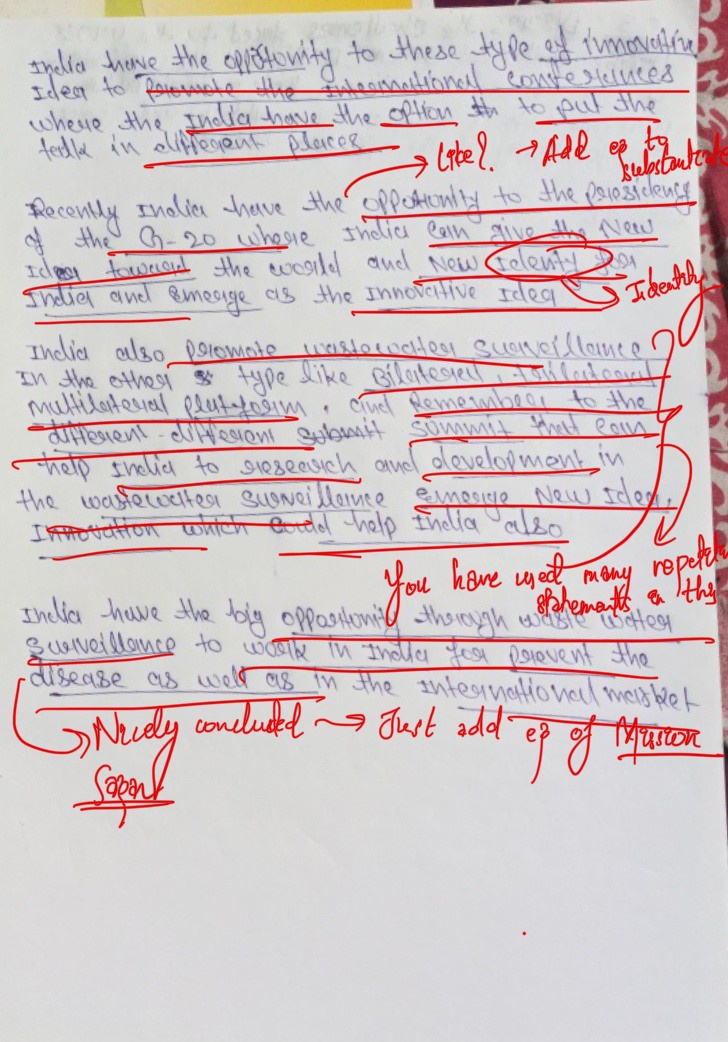 India have the oppotunity to these type of innovative
Idea to promote the International conferances
where the India have the option to put the
talk in different places
Like? → Add eg to
substantiate
Recently India have the oppotunity to the presidency
of the G-20 where India can give the New
Idea toward the world and New Identy for
India and Emerge as the innovative Idea
Identity
India also promote wastewater surveillance
In the other type like Bilateral, trilateral
multilateral platform, and Remember to the
different-different submit summit that can
help India to research and development in
the wastewater surveillance emerge New Idea,
Innovation which could help India also
You have used many repetitive
statements in this
India have the big oppostonity through waste water
surveillance to work in India for prevent the
disease as well as in the International market
Nicely concluded → Just add eg of Mission